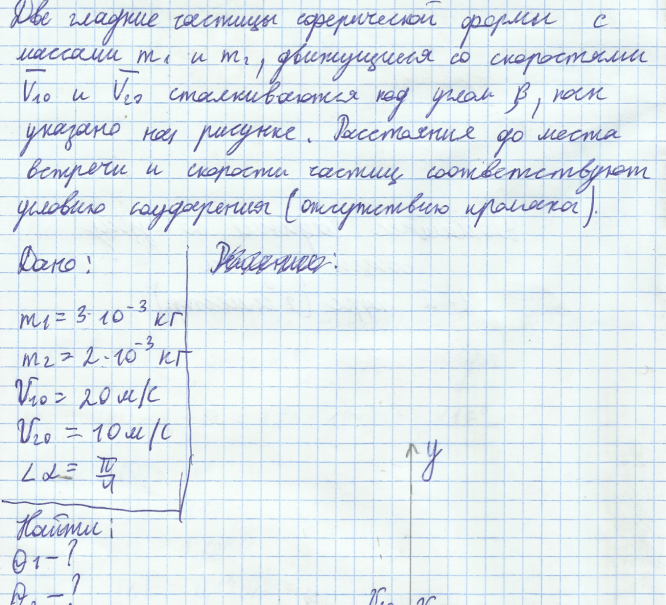 Две гладкие частицы сферической формы с
массами m₁ и m₂, движущиеся со скоростями
V̅₁₀ и V̅₂₀ сталкиваются под углом β, как
указано на рисунке. Расстояния до места
встречи и скорости частиц соответствуют
условию соударения (отсутствию промаха).
Дано:
Решение:
m₁ = 3·10⁻³ кг
m₂ = 2·10⁻³ кг
V₁₀ = 20 м/с
V₂₀ = 10 м/с
∠α = π/4
y
Найти:
Θ₁ - ?